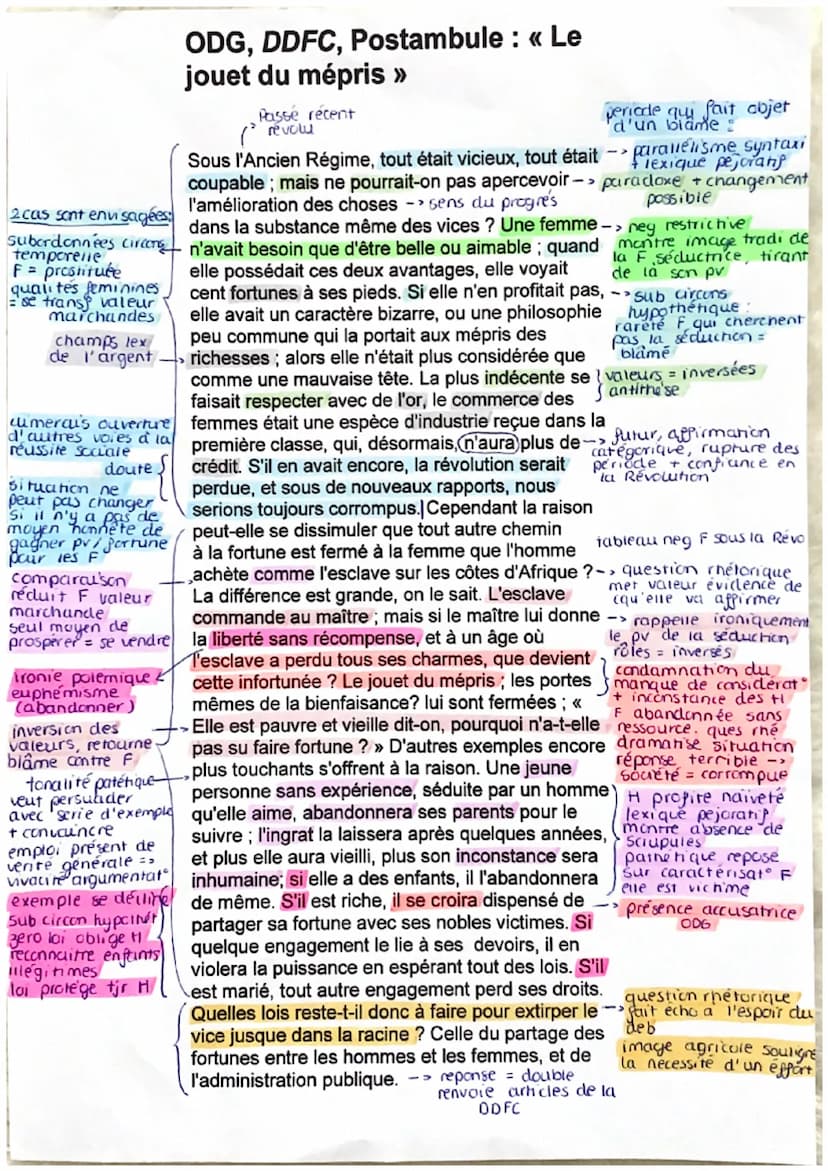 ODG, DDFC, Postambule : « Le
jouet du mépris »
Passé récent
révolu
Sous l'Ancien Régime, tout était vicieux, tout était
coupable ; mais ne pourrait-on pas apercevoir
l'amélioration des choses --> sens du progrès
dans la substance même des vices ? Une femme
n'avait besoin que d'être belle ou aimable ; quand
elle possédait ces deux avantages, elle voyait
cent fortunes à ses pieds. Si elle n'en profitait pas,
elle avait un caractère bizarre, ou une philosophie
peu commune qui la portait aux mépris des
richesses ; alors elle n'était plus considérée que
comme une mauvaise tête. La plus indécente se
faisait respecter avec de l'or, le commerce des
femmes était une espèce d'industrie reçue dans la
première classe, qui, désormais, n'aura plus de
crédit. S'il en avait encore, la révolution serait
perdue, et sous de nouveaux rapports, nous
serions toujours corrompus. Cependant la raison
peut-elle se dissimuler que tout autre chemin
à la fortune est fermé à la femme que l'homme
achète comme l'esclave sur les côtes d'Afrique ?
La différence est grande, on le sait. L'esclave
commande au maître ; mais si le maître lui donne
la liberté sans récompense, et à un âge où
l'esclave a perdu tous ses charmes, que devient
cette infortunée ? Le jouet du mépris ; les portes
mêmes de la bienfaisance? lui sont fermées ; «
Elle est pauvre et vieille dit-on, pourquoi n'a-t-elle
pas su faire fortune ? » D'autres exemples encore
plus touchants s'offrent à la raison. Une jeune
personne sans expérience, séduite par un homme
qu'elle aime, abandonnera ses parents pour le
suivre ; l'ingrat la laissera après quelques années,
et plus elle aura vieilli, plus son inconstance sera
inhumaine; si elle a des enfants, il l'abandonnera
de même. S'il est riche, il se croira dispensé de
partager sa fortune avec ses nobles victimes. Si
quelque engagement le lie à ses devoirs, il en
violera la puissance en espérant tout des lois. S'il
est marié, tout autre engagement perd ses droits.
Quelles lois reste-t-il donc à faire pour extirper le
vice jusque dans la racine ? Celle du partage des
fortunes entre les hommes et les femmes, et de
l'administration publique. --> reponse = double
renvoie articles de la
DDFC
2 cas sont envisagées:
subordonnées circons
temporelle
F = prostituée
qualités feminines
= se transf valeur
marchandes
champs lex
de l'argent
ouverture
d'autres voies à la
réussite sociale
doute
situation ne
peut pas changer
si il n'y a pas de
moyen honnête de
gagner pv/fortune
pour les F
comparaison
réduit F valeur
marchande
seul moyen de
prospérer = se vendre
ironie polemique
euphémisme
(abandonner)
inversion des
valeurs, retourne
blâme contre F
tonalité patétique
veut persuader
avec serie d'exemple
+ convaincre
emploi présent de
vérité générale =>
vivacité argumentat°
exemple se décline
sub circon hypothét
zero loi oblige H
reconnaitre enfants
illégitimes
loi protège tjr H
periode qui fait objet
d'un blâme :
--> parallélisme syntaxi
+ lexique péjoratif
--> paradoxe + changement
possible
--> neg restrictive
montre image tradi de
la F séductrice, tirant
de là son pv
--> sub circons
hypothétique :
rareté F qui cherchent
pas la séduction =
blâmé
valeurs = inversées
antithèse
--> futur, affirmation
catégorique, rupture des
période + confiance en
la Révolution
tableau neg F sous la Révo
--> question rhétorique
met valeur évidence de
cqu'elle va affirmer
--> rappelle ironiquement
le pv de la séduction
rôles = inversés
condamnation du
manque de considérat°
+ inconstance des H
F abandonnée sans
ressource. ques rhé
dramatise situation
réponse terrible -->
société = corrompue
H profite naïveté
lexique pejoratif
montre absence de
scrupules
pathétique repose
sur caractérisat° F
elle est victime
--> présence accusatrice
ODG
--> question rhétorique
fait écho à l'espoir du
deb
image agricole souligne
la nécessité d'un effort